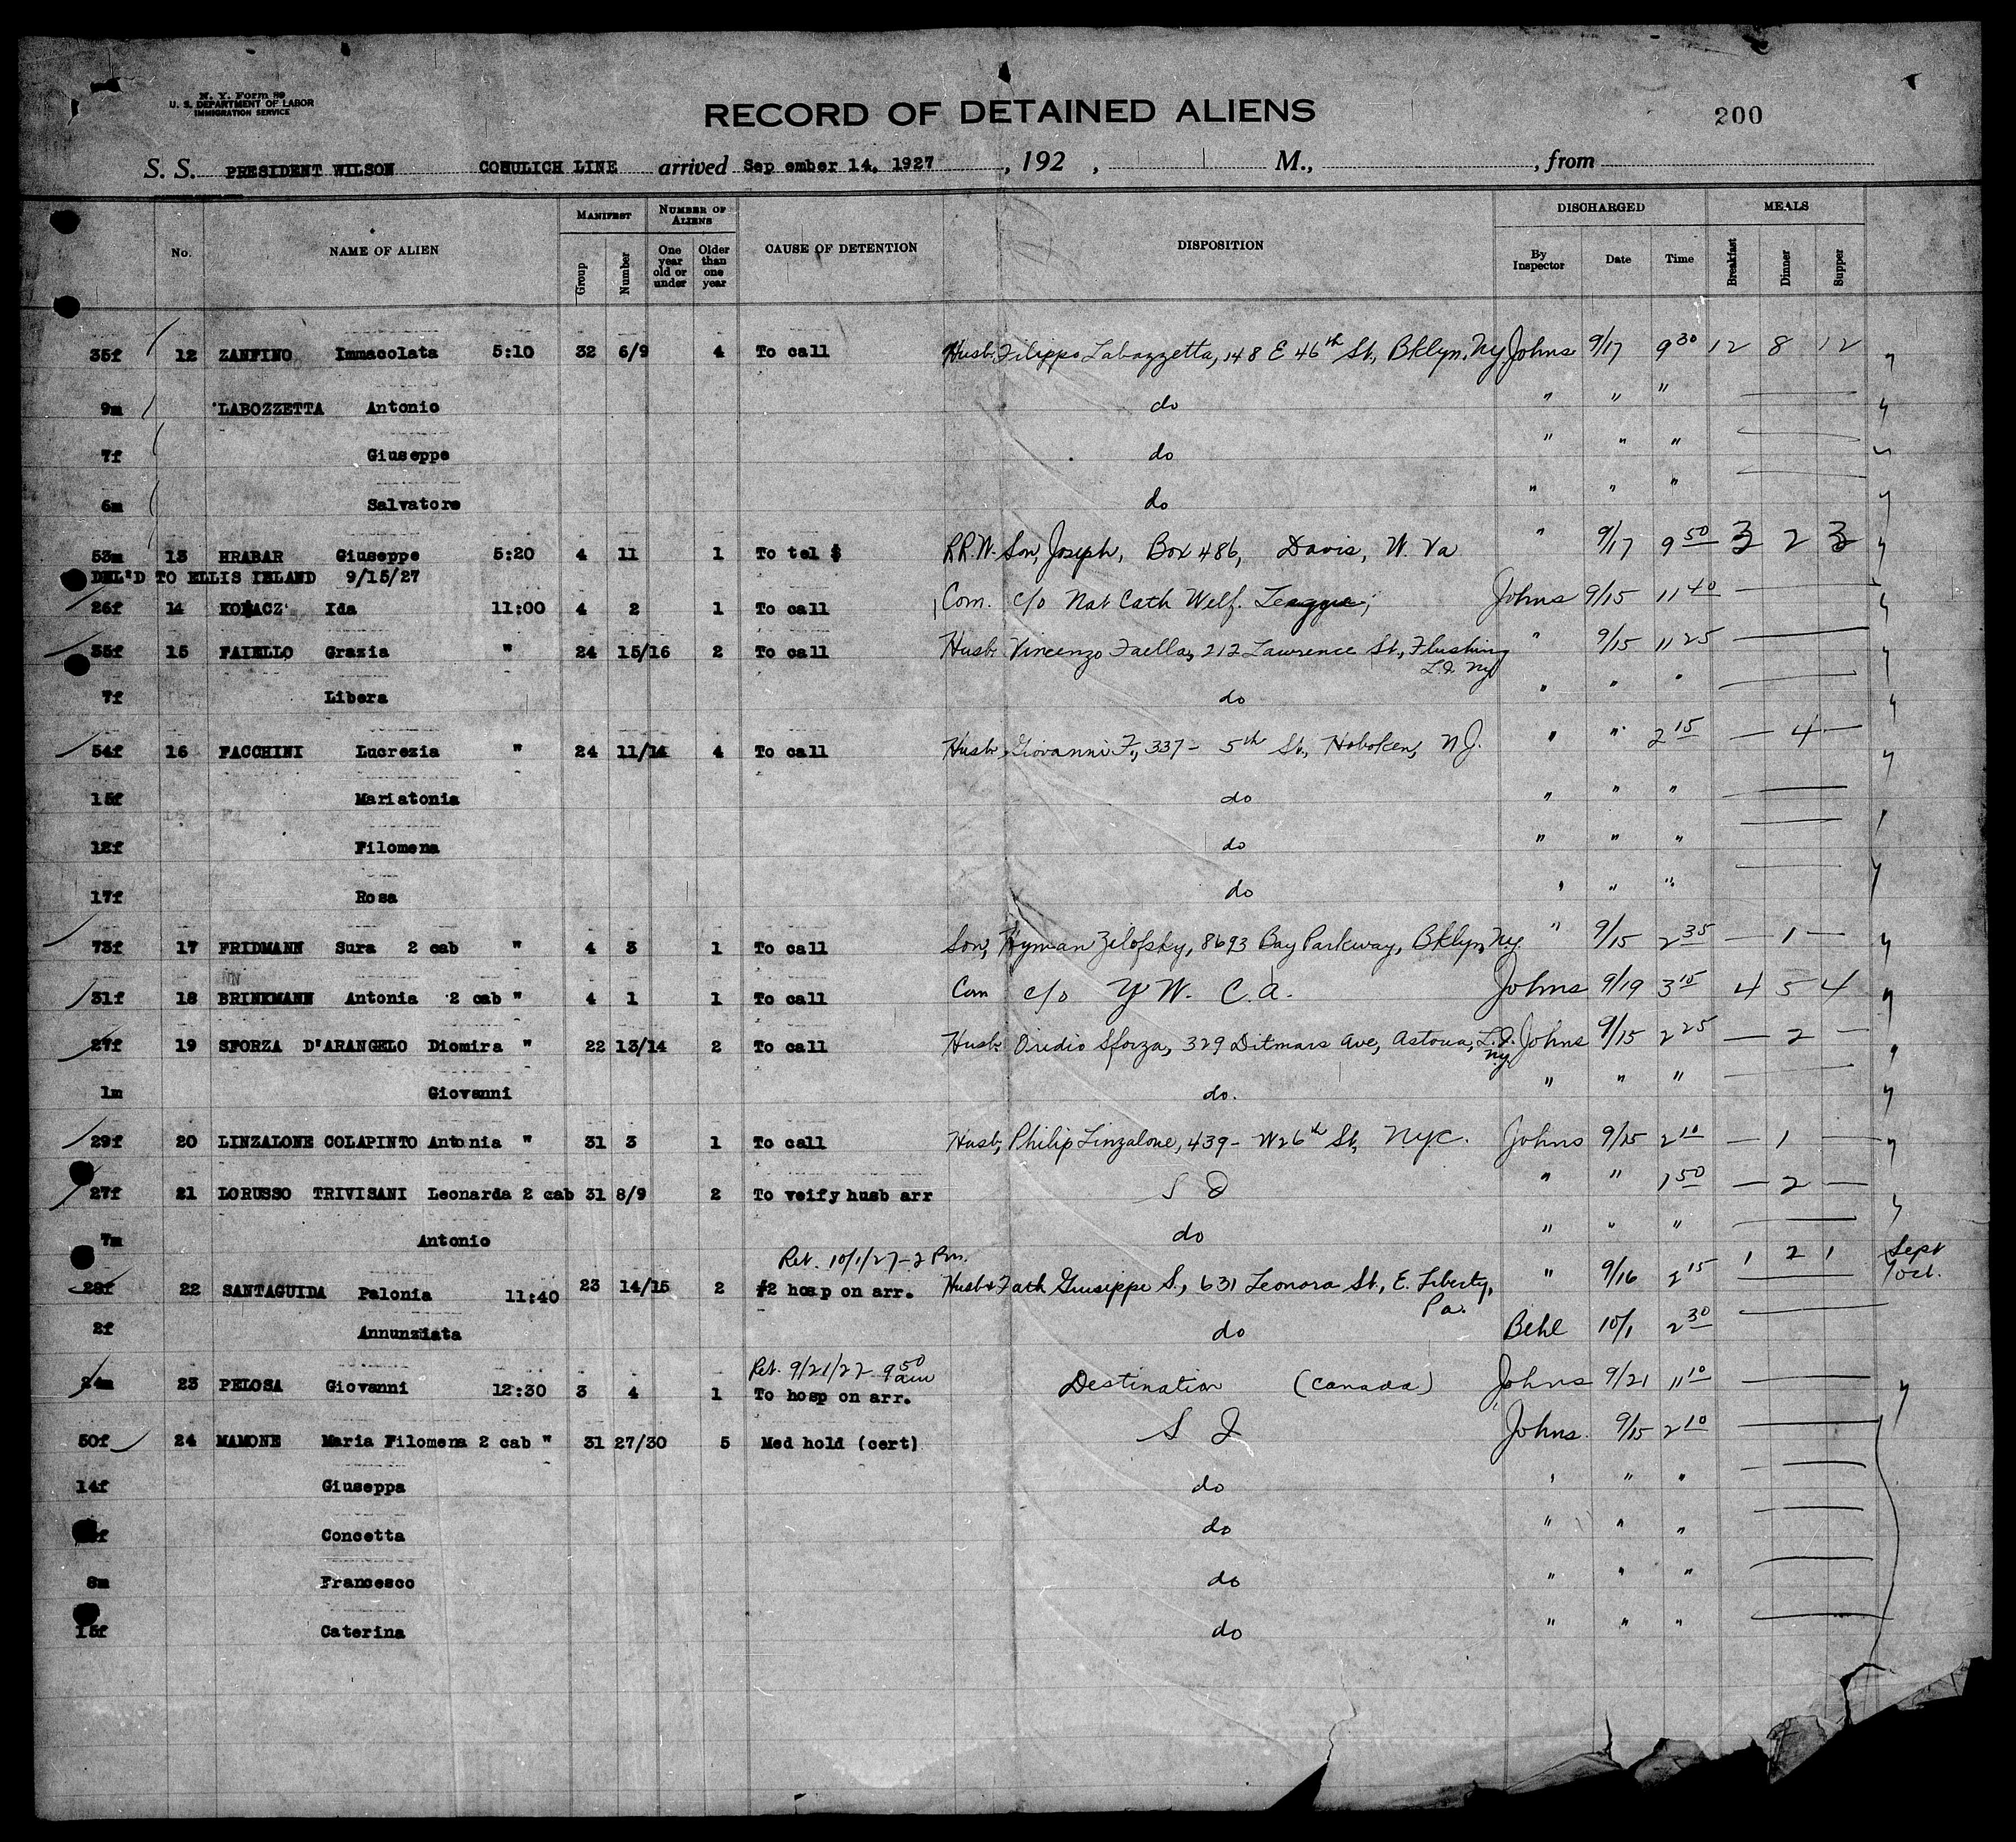 N. Y. Form 89
U. S. DEPARTMENT OF LABOR
IMMIGRATION SERVICE
RECORD OF DETAINED ALIENS
200
S. S. PRESIDENT WILSON COSULICH LINE arrived Sep ember 14, 1927, 192 , M., , from
No. NAME OF ALIEN MANIFEST Group Number NUMBER OF ALIENS One year old or under Older than one year CAUSE OF DETENTION DISPOSITION DISCHARGED By Inspector Date Time MEALS Breakfast Dinner Supper
35f 12 ZANFINO Immacolata 5:10 32 6/9 4 To call Husb, Filippo Labozzetta, 148 E 46th St, Bklyn, NY Johns 9/17 9 30 12 8 12
9m LABOZZETTA Antonio do " " "
7f Giuseppe do " " "
6m Salvatore do " " "
53m 13 HRABAR Giuseppe 5:20 4 11 1 To tel $ RR.W. Son, Joseph, Box 486, Davis, W. Va " 9/17 9 50 3 2 3
DEL'D TO ELLIS ISLAND 9/15/27
26f 14 KOVACZ Ida 11:00 4 2 1 To call Com. c/o Nat Cath Welf. League, Johns 9/15 11 40
35f 15 FAIELLO Grazia " 24 15/16 2 To call Husb Vincenzo Faella, 212 Lawrence St, Flushing L.I. NY " 9/15 11 25
7f Libera do " " "
54f 16 FACCHINI Lucrezia " 24 11/14 4 To call Husb, Giovanni F., 337 - 5th St, Hoboken, NJ. " " 2 15 — 4 —
15f Mariatonia do " " "
12f Filomena do " " "
17f Rosa do " " "
73f 17 FRIDMANN Sura 2 cab " 4 3 1 To call Son, Hyman Zilofsky, 8693 Bay Parkway, Bklyn, NY. " 9/15 2 35 — 1 —
31f 18 BRINKMANN Antonia 2 cab " 4 1 1 To call Com c/o Y.W. C.A. Johns 9/19 3 10 4 5 4
27f 19 SFORZA D'ARANGELO Diomira " 22 13/14 2 To call Husb, Oridio Sforza, 329 Ditmars Ave, Astoria, L.I. NY. Johns 9/15 2 25 — 2 —
1m Giovanni do. " " "
29f 20 LINZALONE COLAPINTO Antonia " 31 3 1 To call Husb, Philip Linzalone, 439 - W 26th St, NYC. Johns 9/15 2 10 — 1 —
27f 21 LORUSSO TRIVISANI Leonarda 2 cab 31 8/9 2 To veify husb arr S I " " 1 50 — 2 —
7m Antonio do " " "
Ret. 10/1/27 - 2 Pm.
28f 22 SANTAGUIDA Palonia 11:40 23 14/15 2 #2 hosp on arr. Husb & Fath Giuseppe S., 631 Leonora St, E. Liberty, Pa. " 9/16 2 15 1 2 1 Sept Oct.
2f Annunziata do Behl 10/1 2 30
Ret. 9/21/27 - 9 50 am
24m 23 PELOSA Giovanni 12:30 3 4 1 To hosp on arr. Destination (Canada) Johns 9/21 11 10
50f 24 MAMONE Maria Filomena 2 cab " 31 27/30 5 Med hold (cert) S I Johns. 9/15 2 10
14f Giuseppa do " " "
Concetta do " " "
8m Francesco do " " "
15f Caterina do " " "